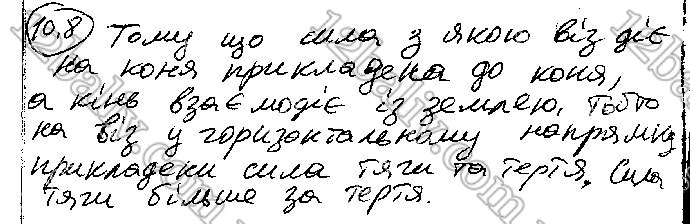 10.8 Тому що сила з якою віз діє
на коня прикладена до коня,
а кінь взаємодіє із землею. Тобто
на віз у горизонтальному напрямку
прикладени сила тяги та тертя. Сила
тяги більше за тертя.